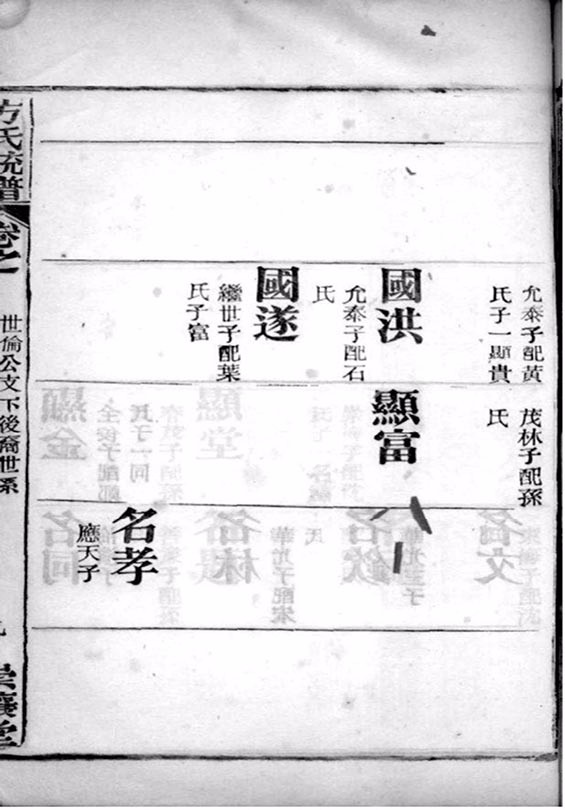 允泰子配黃
氏子一顯貴
國洪
允泰子配石
氏
國遂
繼世子配葉
氏子富
茂林子配孫
氏
顯富
名孝
應天子
方氏統譜
卷之
世倫公支下後裔世系